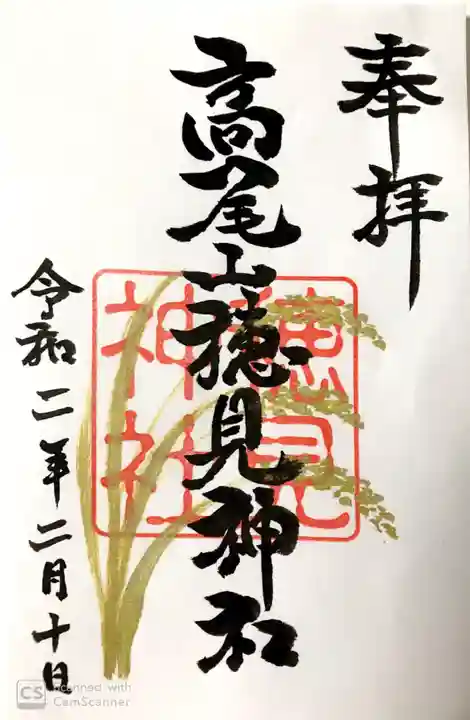 奉拝
高尾山穂見神社
穂見
神社
令和二年二月十日
CS Scanned with
CamScanner